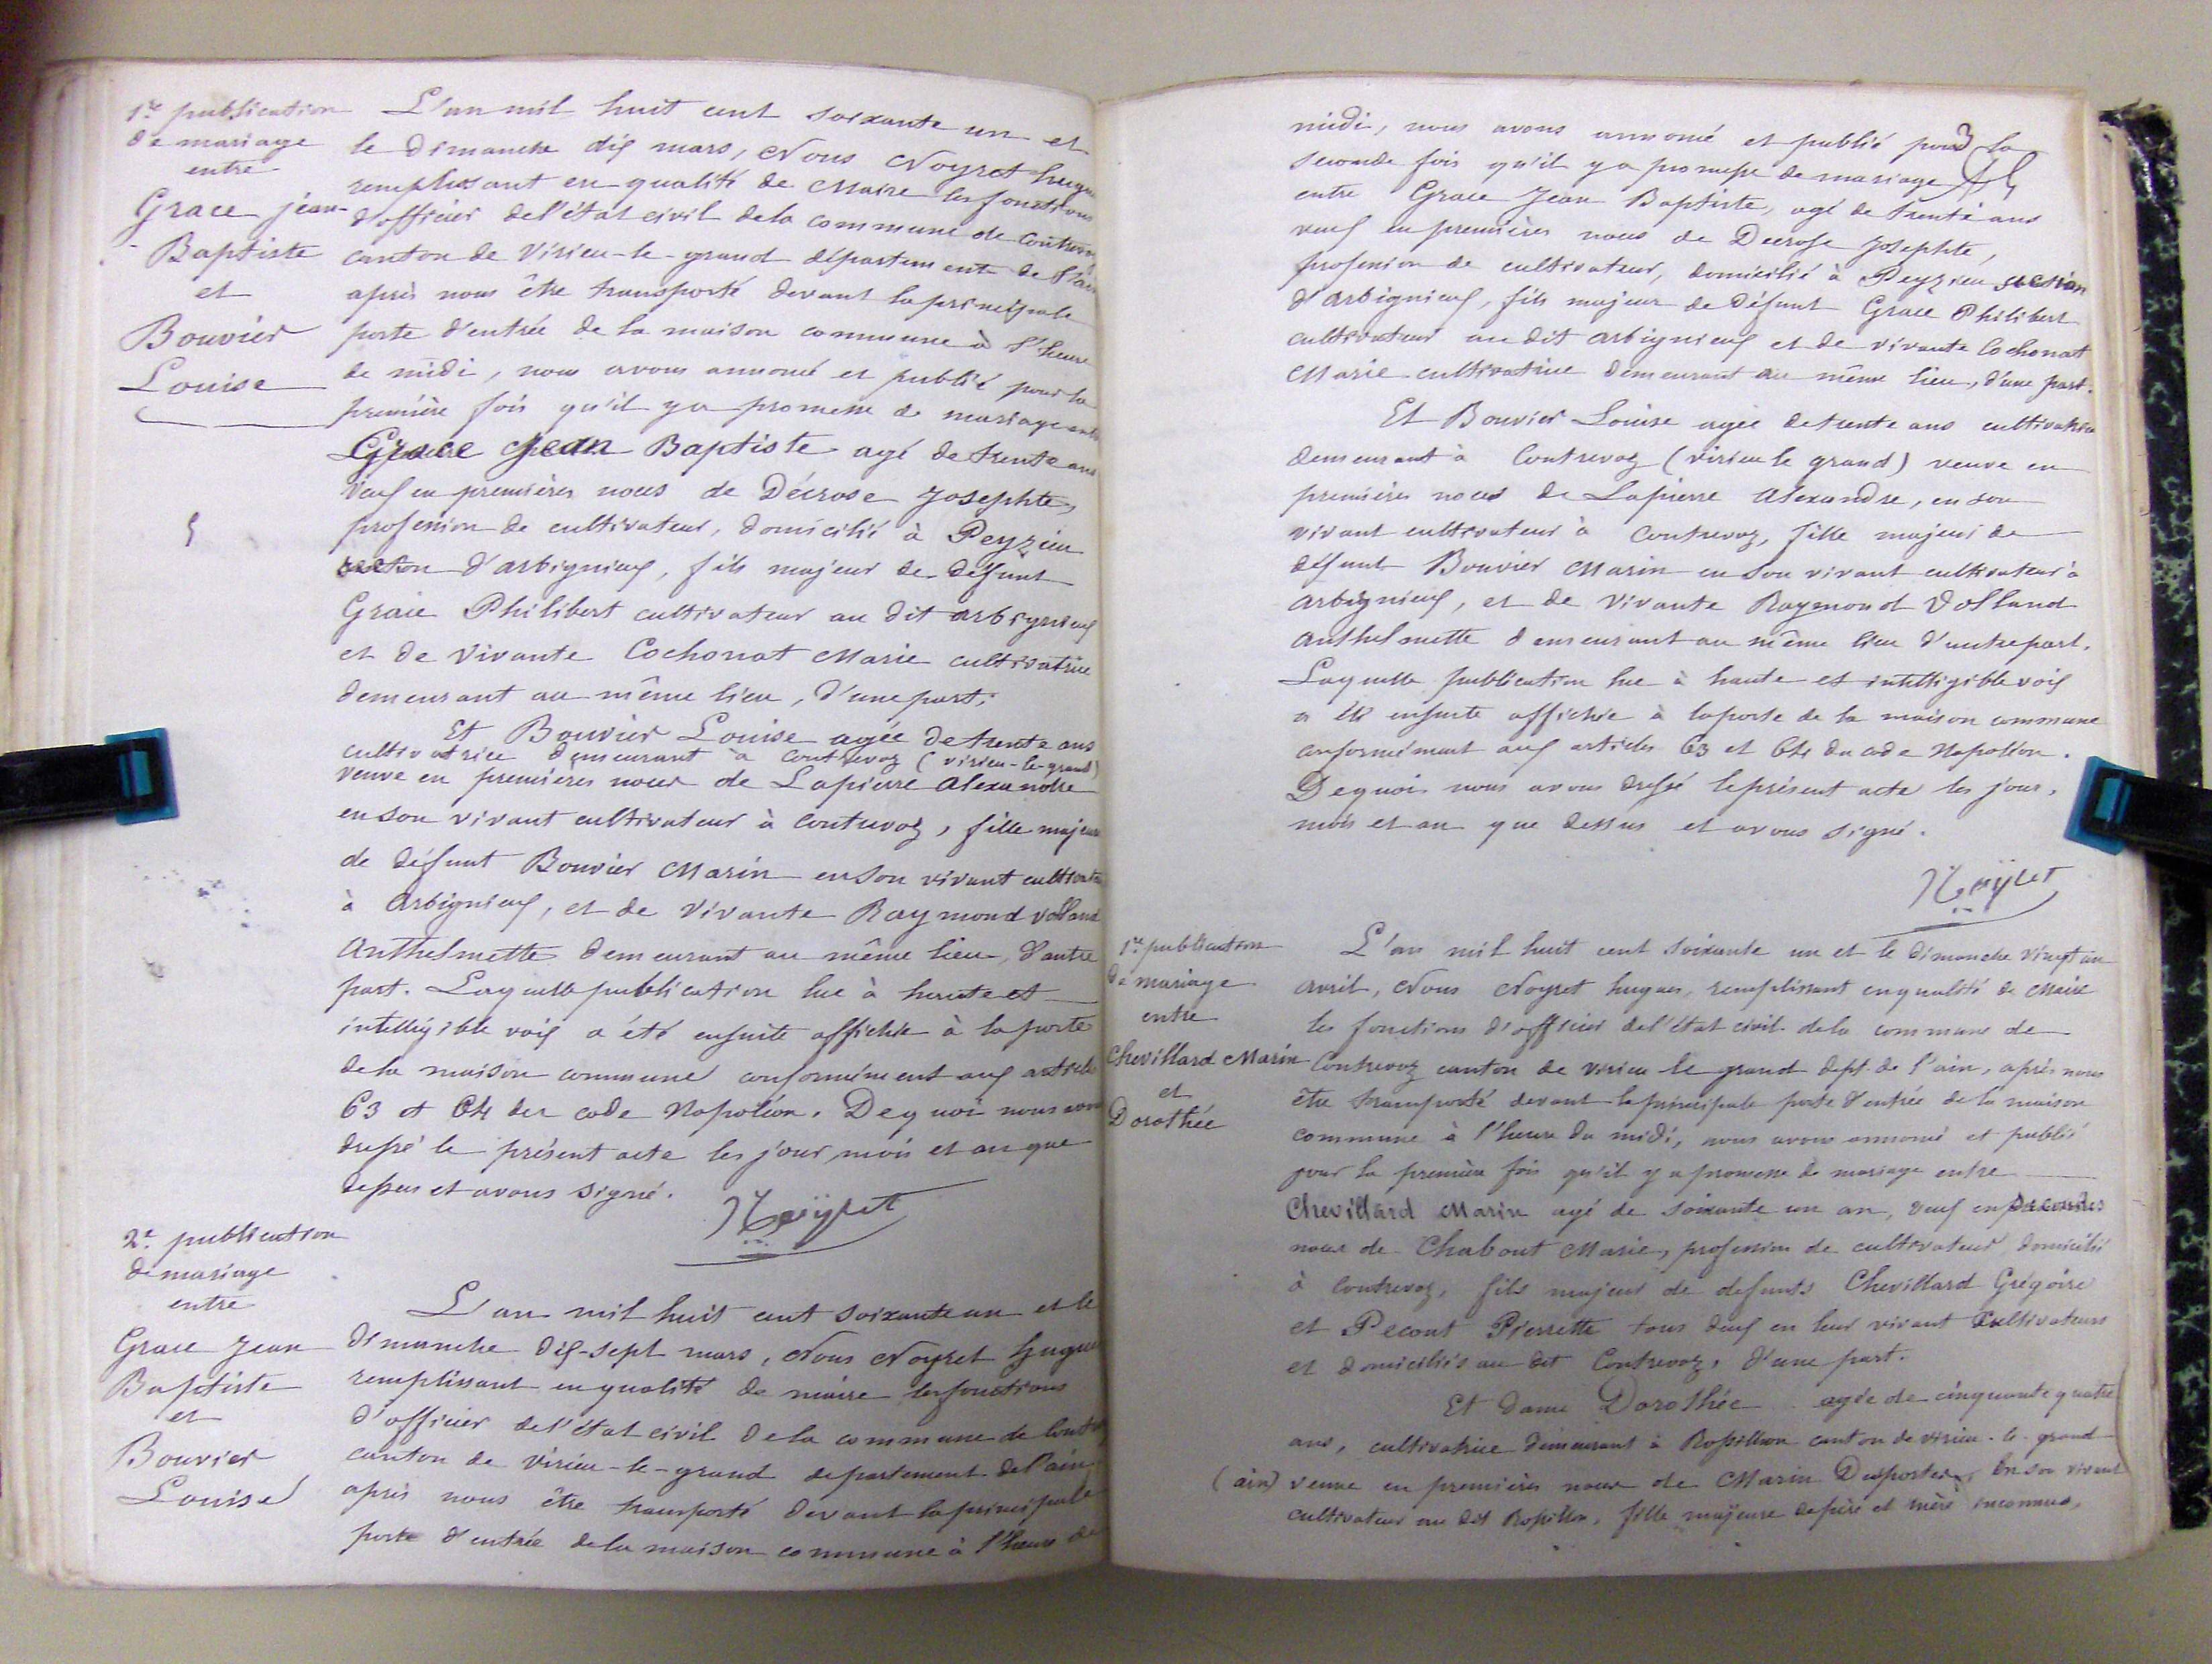 1re publication
de mariage
entre
Grace jean-
Baptiste
et
Bouvier
Louise
L'an mil huit cent soixante un et
le dimanche dix mars, Nous Noyret hugues
remplissant en qualité de Maire les fonctions
d'officier de l'état civil de la commune de Contrevoz
canton de Virieu-le-grand département de l'ain
après nous être transporté devant la principale
porte d'entrée de la maison commune à l'heure
de midi, nous avons annoncé et publié pour la
première fois qu'il y a promesse de mariage entre
Grace Jean Baptiste agé de trente ans
veuf en premières noces de Décrose Josephte,
profession de cultivateur, domicilié à Peyzieu
section d'arbignieux, fils majeur de défunt
Grace Philibert cultivateur au dit arbignieux
et de vivante Cochonat Marie cultivatrice
demeurant au même lieu, d'une part.
Et Bouvier Louise agée de trente ans
cultivatrice demeurant à Contrevoz (virieu-le-grand)
veuve en premières noces de Lapierre Alexandre
en son vivant cultivateur à Contrevoz, fille majeure
de défunt Bouvier Marin en son vivant cultivateur
à Arbignieux, et de vivante Raymond volland
Anthelmette demeurant au même lieu, d'autre
part. Laquelle publication lue à haute et
intelligible voix a été ensuite affichée à la porte
de la maison commune conformément aux articles
63 et 64 du code Napoléon. De quoi nous avons
dressé le présent acte les jour, mois et an que
dessus et avons signé.
Noÿret
2e publication
de mariage
entre
Grace Jean
Baptiste
et
Bouvier
Louise
L'an mil huit cent soixante un et le
dimanche dix-sept mars, Nous Noyret hugues
remplissant en qualité de maire les fonctions
d'officier de l'état civil de la commune de Contrevoz
canton de Virieu-le-grand département de l'ain
après nous être transporté devant la principale
porte d'entrée de la maison commune à l'heure de
3
midi, nous avons annoncé et publié pour la
seconde fois qu'il y a promesse de mariage
entre Grace Jean Baptiste, agé de trente ans
veuf en premières noces de Decrose Josephte,
profession de cultivateur, domicilié à Peyzieu section
d'Arbignieux, fils majeur de défunt Grace Philibert
cultivateur au dit arbignieux et de vivante Cochonat
Marie cultivatrice demeurant au même lieu, d'une part.
Et Bouvier Louise agée de trente ans cultivatrice
demeurant à Contrevoz (virieu le grand) veuve en
premières noces de Lapierre Alexandre, en son
vivant cultivateur à Contrevoz, fille majeur de
défunt Bouvier Marin en son vivant cultivateur à
Arbignieux, et de vivante Raymond Volland
Anthelmette demeurant au même lieu d'autre part.
Laquelle publication lue à haute et intelligible voix
a été ensuite affichée à la porte de la maison commune
conformément aux articles 63 et 64 du code Napoléon.
De quoi nous avons dressé le présent acte les jour,
mois et an que dessus et avons signé.
Noÿret
1re publication
de mariage
entre
Chevillard Marin
et
Dorothée
L'an mil huit cent soixante un et le dimanche vingt un
avril, Nous Noyret hugues, remplissant en qualité de Maire
les fonctions d'officier de l'état civil de la commune de
Contrevoz canton de virieu le grand dept. de l'ain, après nous
être transporté devant la principale porte d'entrée de la maison
commune à l'heure du midi, nous avons annoncé et publié
pour la première fois qu'il y a promesse de mariage entre
Chevillard Marin agé de soixante un an, veuf en secondes
noces de Chabout Marie, profession de cultivateur domicilié
à Contrevoz, fils majeur de defunts Chevillard Grégoire
et Pecout Pierrette tous deux en leur vivant Cultivateurs
et domiciliés au dit Contrevoz, d'une part.
Et Dame Dorothée agée de cinquante quatre
ans, cultivatrice demeurant à Rossillon canton de virieu-le-grand
(ain) veuve en premières noces de Marin Desportes, En son vivant
cultivateur au dit Rossillon, fille majeure de père et mère inconnus.